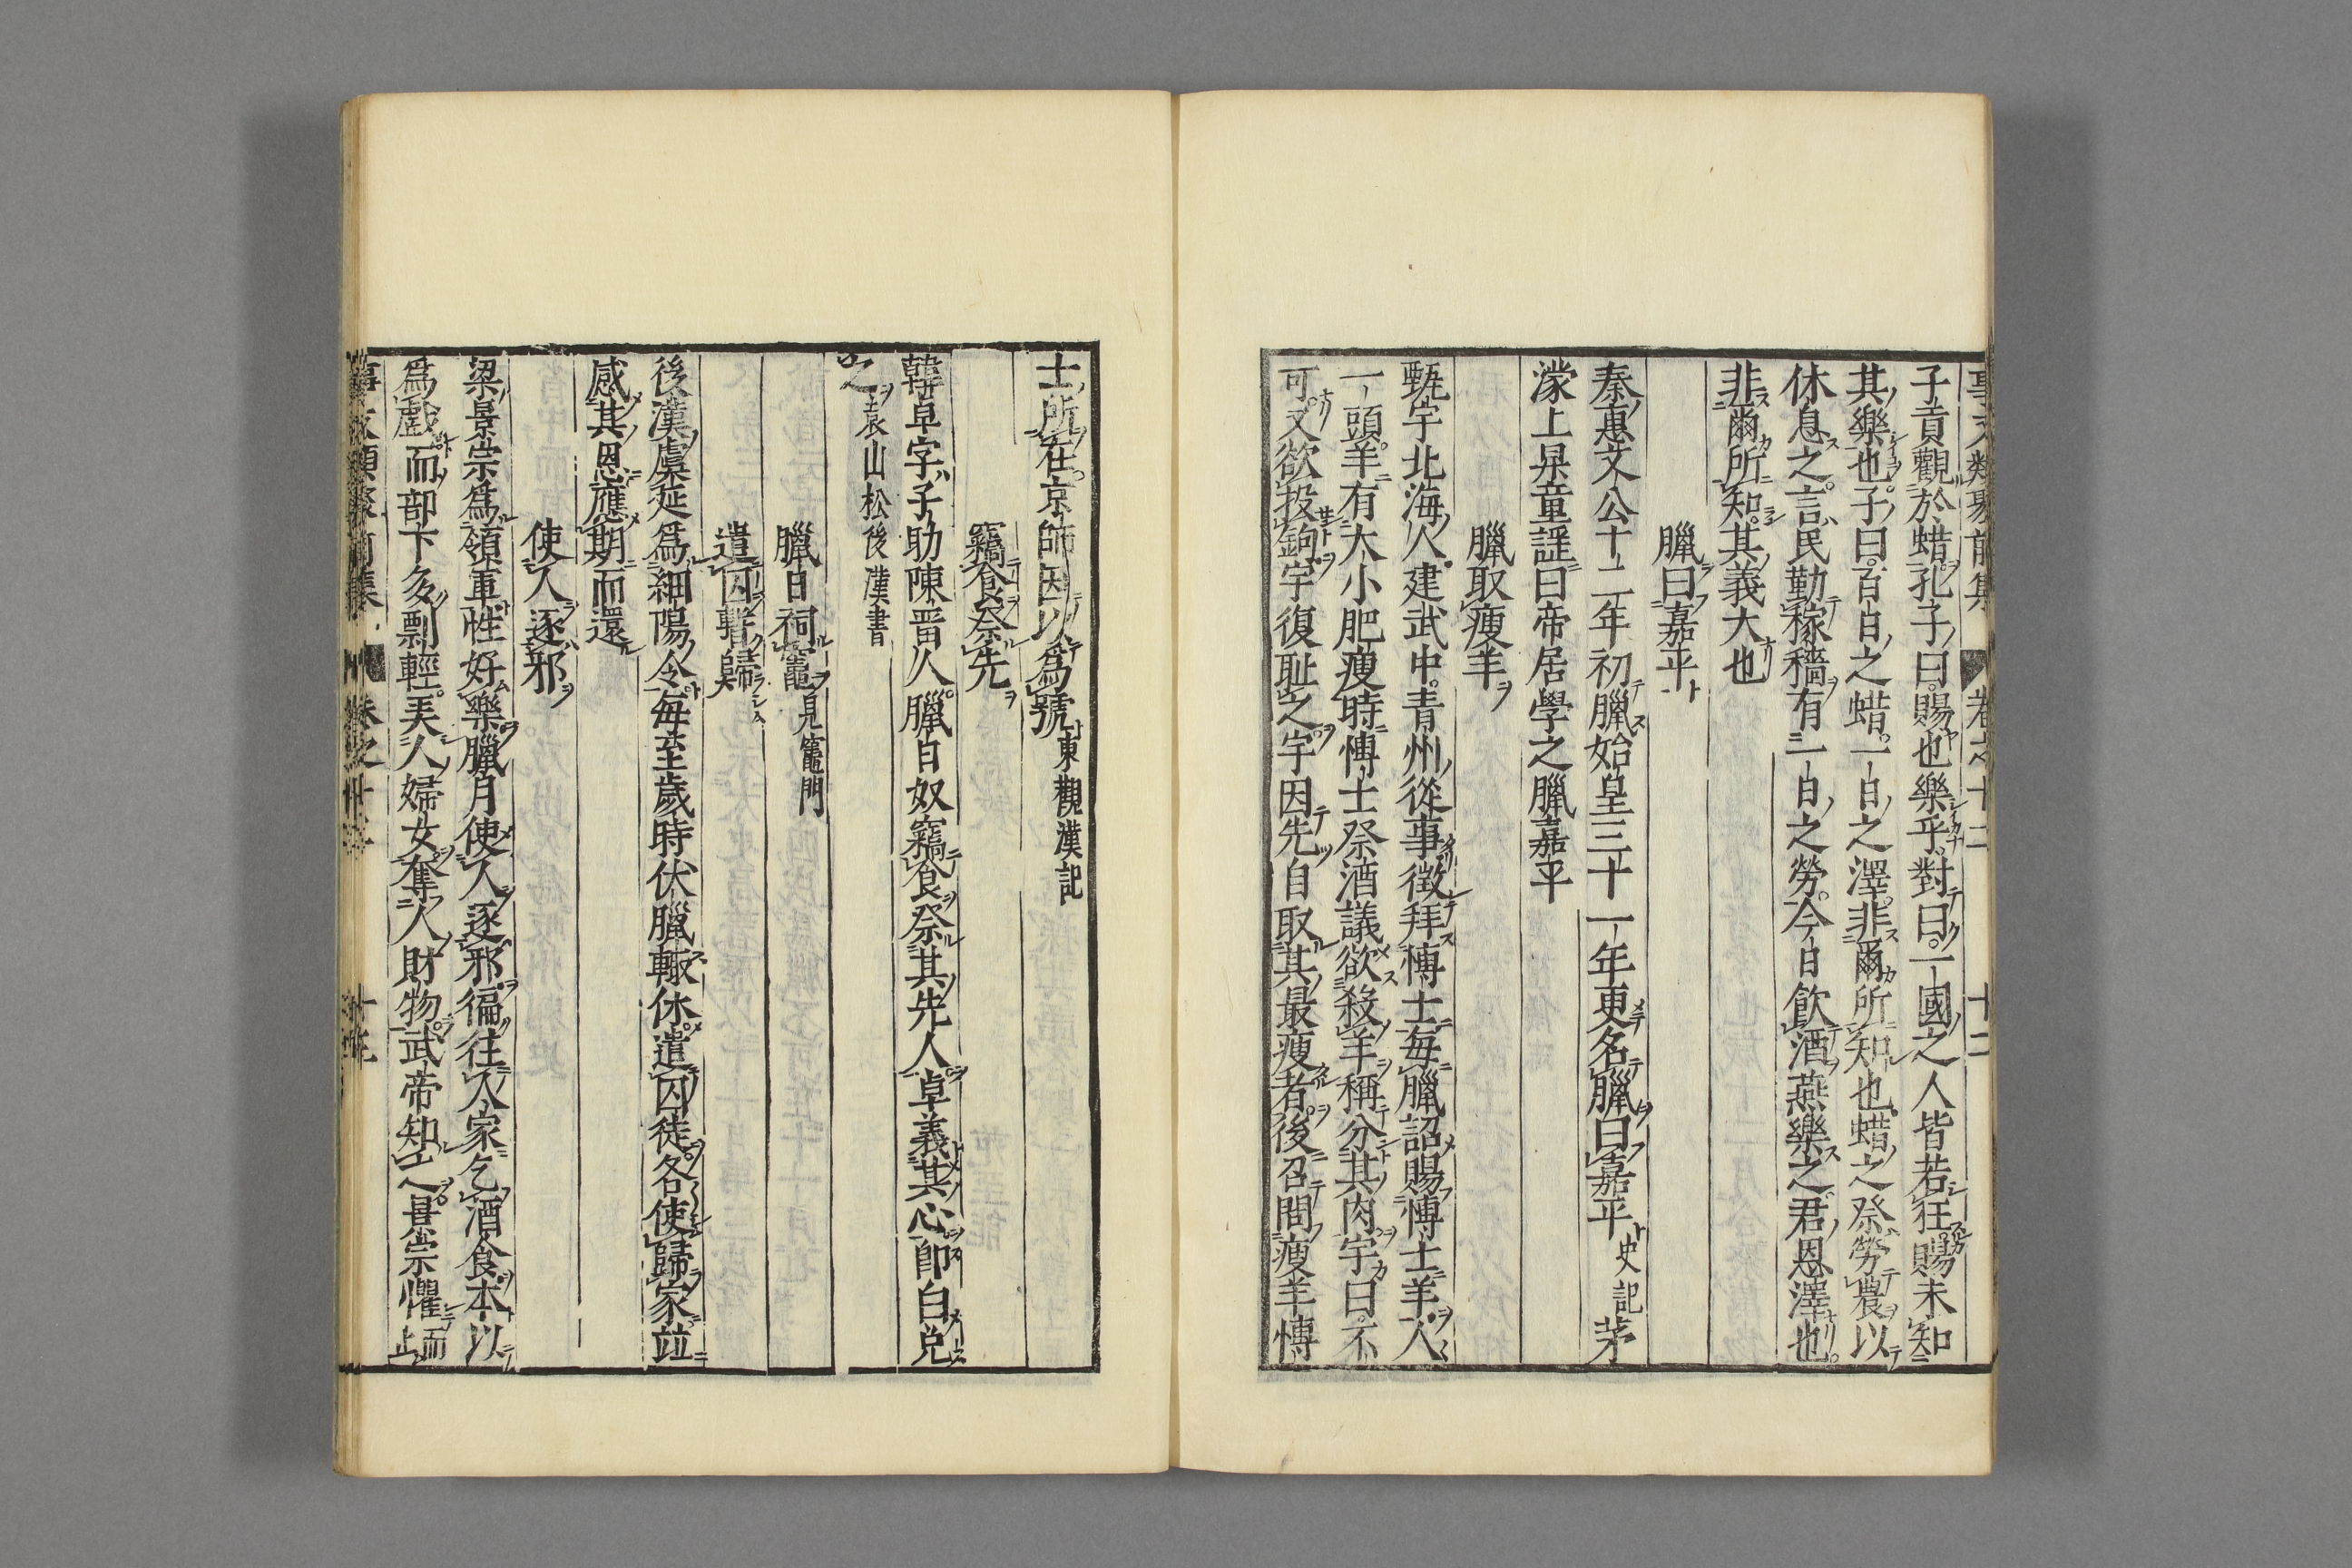 事文類聚前集 卷之十二 十二
子貢觀於蜡孔子曰賜也樂乎對曰一國之人皆若狂賜未知
其樂也子曰百日之蜡一日之澤非爾所知也蜡之祭勞農以
休息之言民勤稼穡有一日之勞今日飮酒燕樂之君恩澤也
非爾所知其義大也
臘曰嘉平
秦惠文公十二年初臘始皇三十一年更名臘曰嘉平史記茅
濛上昇童謡曰帝居學之臘嘉平
臘取瘦羊
甄宇北海人建武中青州從事徵拜博士每臘詔賜博士羊人
一頭羊有大小肥瘦時博士祭酒議欲殺羊稱分其肉宇曰不
可又欲投鉤宇復耻之宇因先自取其最瘦者後召問瘦羊博
士所在京師因以爲號東觀漢記
竊食祭先
韓卓字子助陳晋人臘日奴竊食祭其先人卓義其心卽白免
之袁山松後漢書
臘日祠竈見竈門
遣囚暫歸
後漢虞延爲細陽令每至歲時伏臘輙休遣囚徒各使歸家並
感其恩應期而還
使人逐邪
梁景宗爲領軍性好樂臘月使人逐邪徧徃人家乞酒食本以
爲戲而部下多剽輕美人婦女奪人財物武帝知之景宗懼而止
事文類聚前集 卷之十二